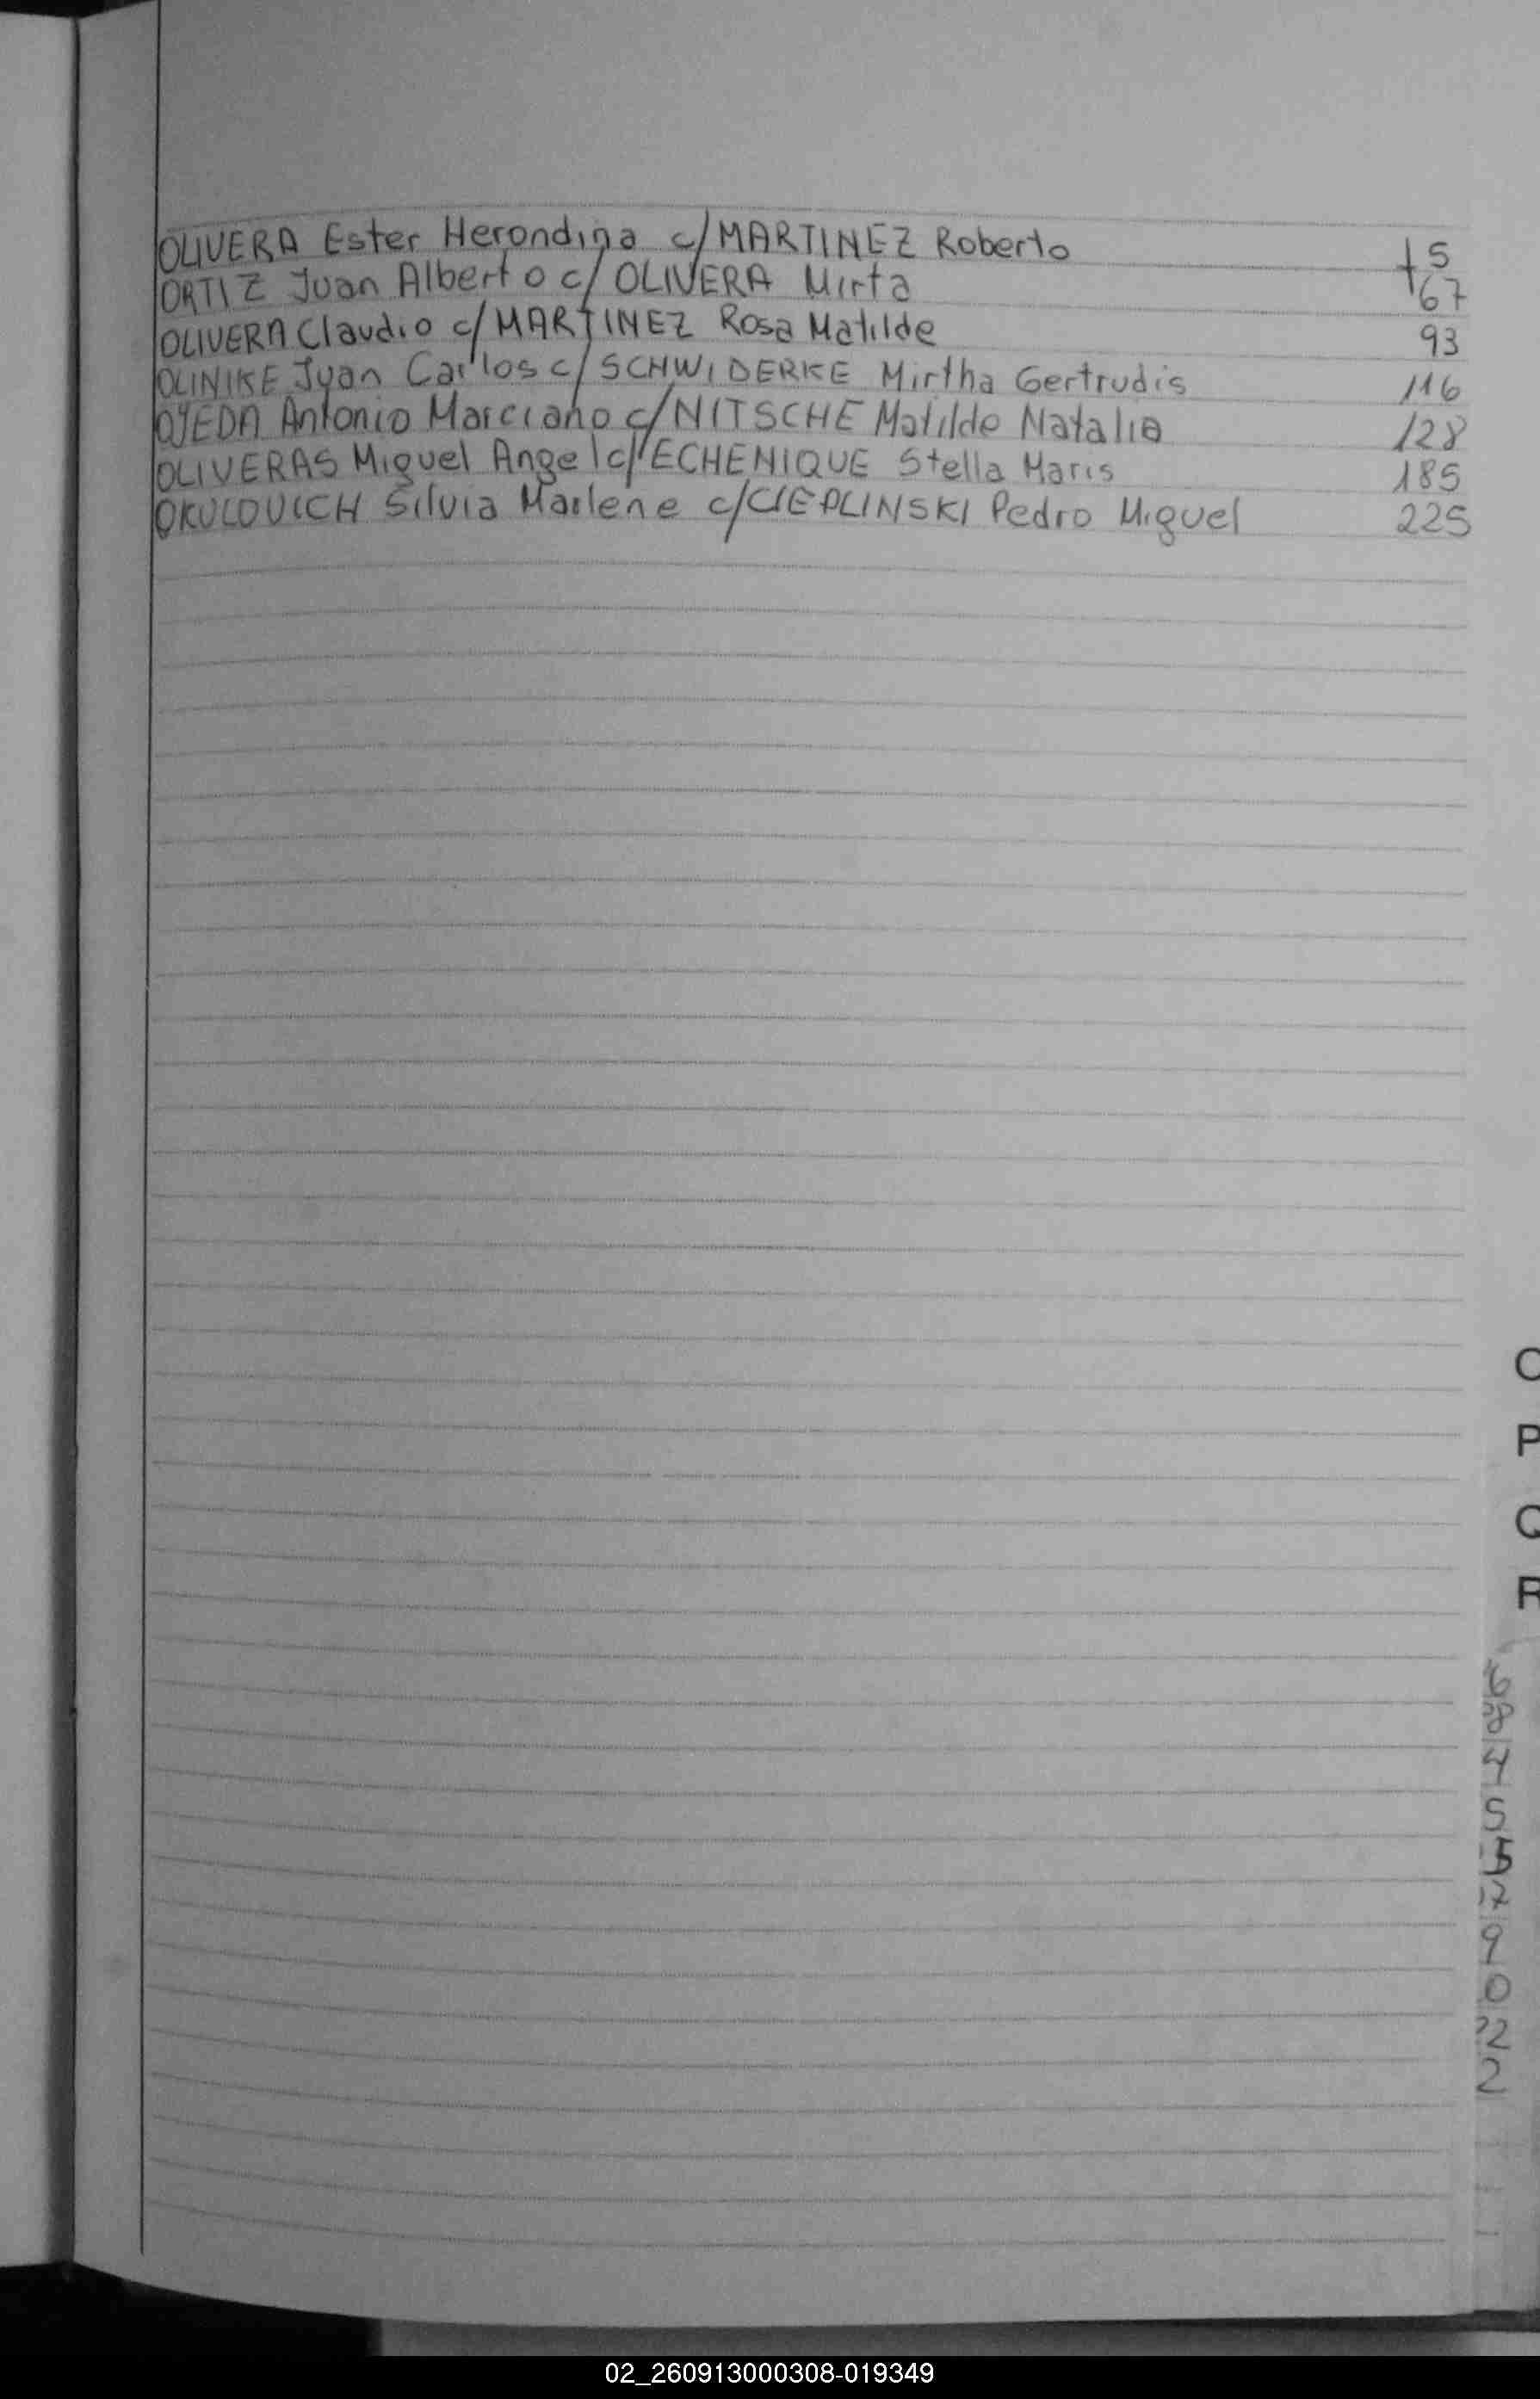 OLIVERA Ester Herondina c/MARTINEZ Roberto 5
ORTIZ Juan Alberto c/ OLIVERA Mirta 67
OLIVERA Claudio c/MARTINEZ Rosa Matilde 93
OLINIKE Juan Carlos c/ SCHWIDERKE Mirtha Gertrudis 116
OJEDA Antonio Marciano c/NITSCHE Matilde Natalia 128
OLIVERAS Miguel Angel c/ ECHENIQUE Stella Maris 185
OKULOVICH Silvia Marlene c/CIEPLINSKI Pedro Miguel 225
P
R
4
5
5
7
9
0
22
2
02_260913000308-019349